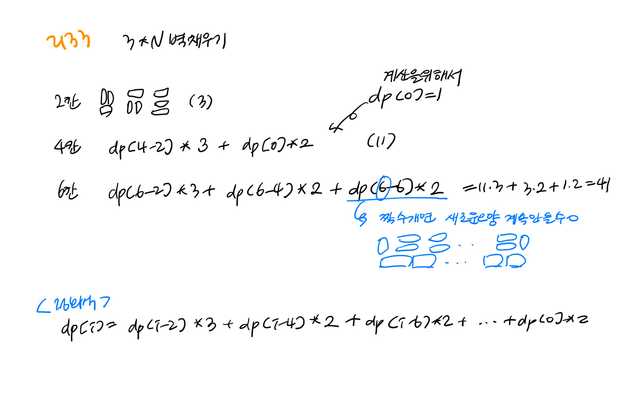 2133 3*N 벽채우기
계산을위해서
dp[0]=1
2칸 (3)
4칸 dp[4-2] * 3 + dp[0]*2 (11)
6칸 dp[6-2]*3+ dp[6-4]*2 + dp[6-6]*2 =11.3+3.2+1.2=41
짝수개면 새로운모양 계속만들수o
<일반화>
dp[i]= dp[i-2]*3+dp[i-4]*2+dp[i-6]*2+ ... +dp[0]*2